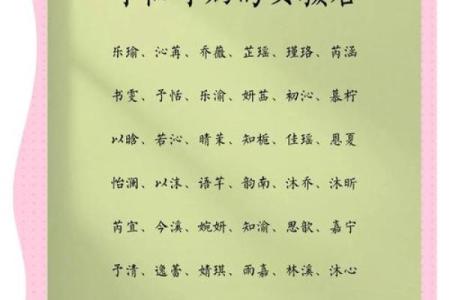 乐瑜、沁苒、乔薇、芷瑶、瑾珞、芮涵
书雯、予恬、乐渝、妍茜、初沁、慕柠
以晗、若沁、晴茉、知栀、佳瑶、恩夏
怡澜、以沫、语芊、韵南、沐乔、沐昕
芮宜、今溪、婉妍、知渝、思歆、嘉宁
予清、逸蕾、婧琪、雨嘉、林溪、沐心